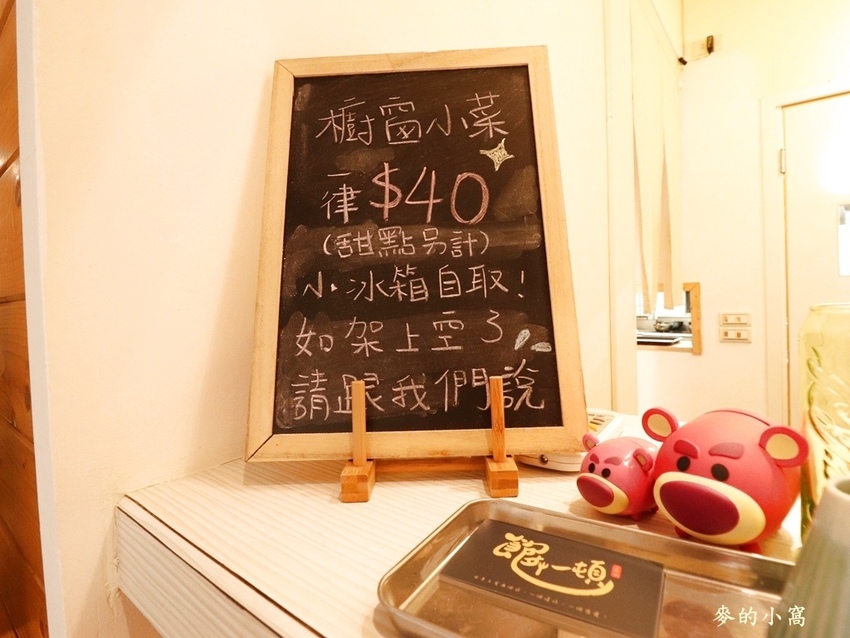 櫥窗小菜
一律$40
(甜點另計)
小冰箱自取!
如架上空了,
請跟我們說
餵我一頓
麥的小窩